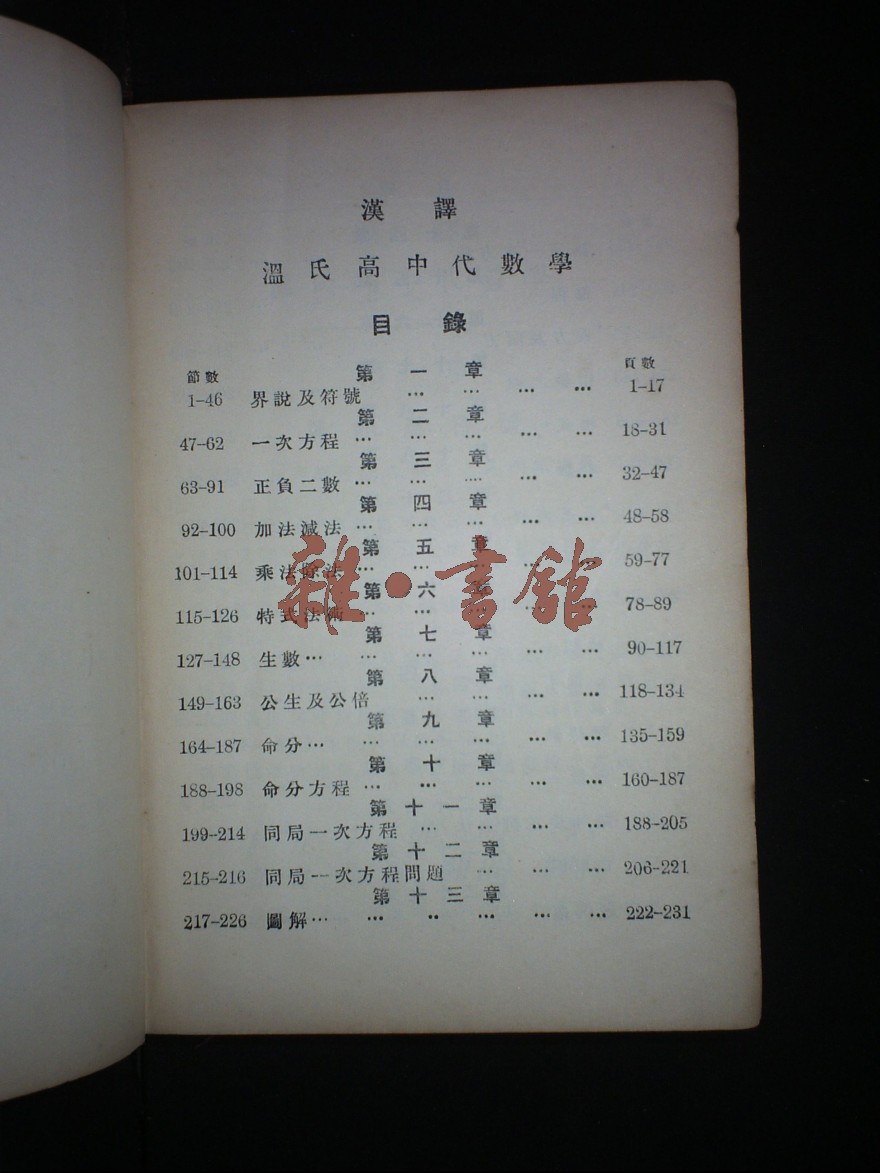 漢譯
溫氏高中代數學
目錄
節數 頁數
第一章
1-46 界說及符號 … … … … 1-17
第二章
47-62 一次方程 … … … … … 18-31
第三章
63-91 正負二數 … … … … … 32-47
第四章
92-100 加法減法 … … … … … 48-58
第五章
101-114 乘法除法 … … 59-77
第六章
115-126 特式法 … … … 78-89
第七章
127-148 生數 … … … … … … 90-117
第八章
149-163 公生及公倍 … … … … 118-134
第九章
164-187 命分 … … … … … … 135-159
第十章
188-198 命分方程 … … … … … 160-187
第十一章
199-214 同局一次方程 … … … … 188-205
第十二章
215-216 同局一次方程問題 … … … 206-221
第十三章
217-226 圖解 … … ‥ … … … 222-231
雜·書館